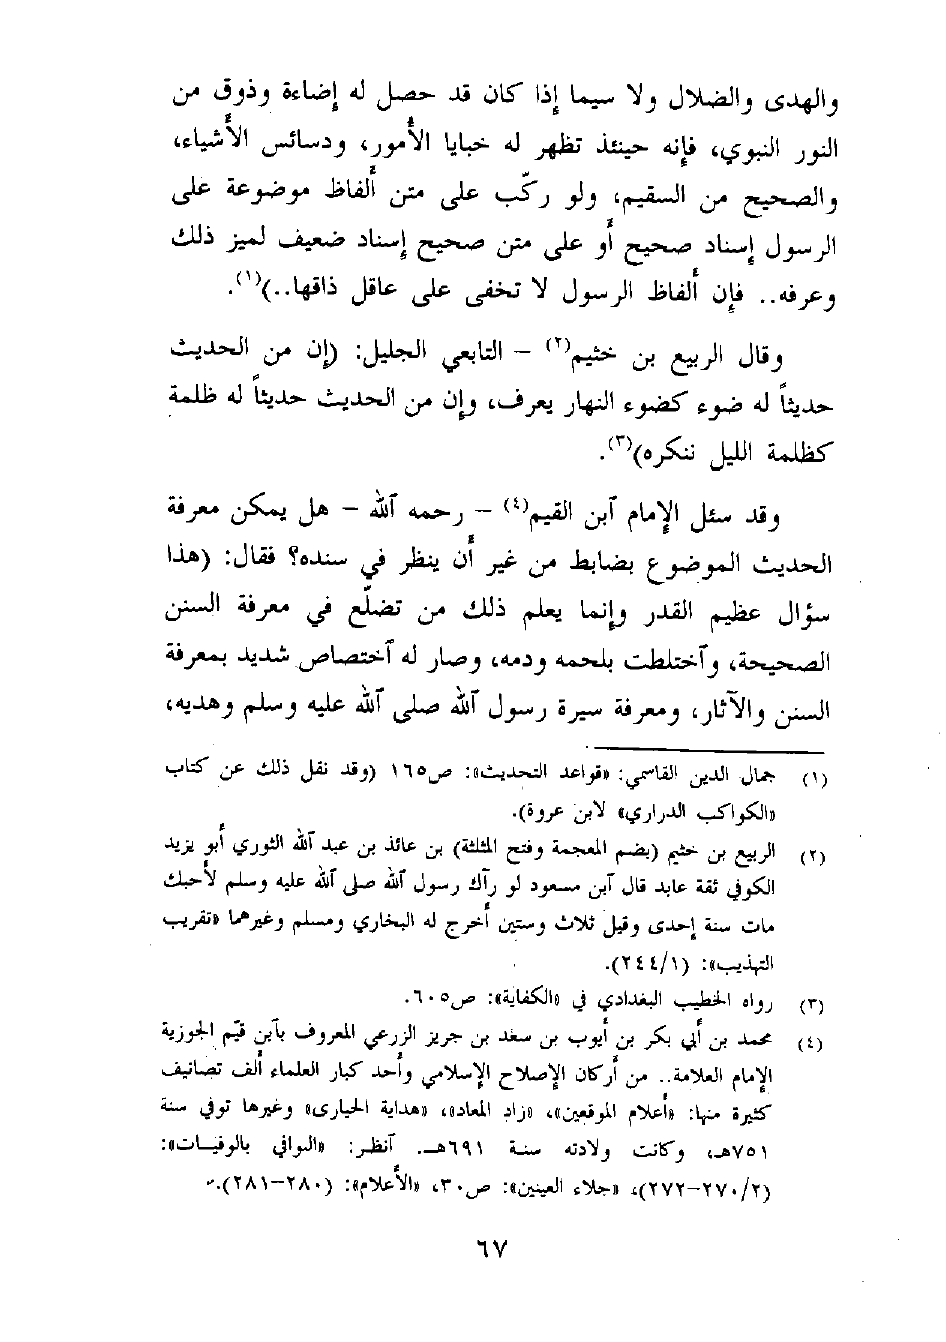 والهدى والضلال ولا سيما إذا كان قد حصل له إضاءة وذوق من
النور النبوي، فإنه حينئذ تظهر له خبايا الأمور، ودسائس الأشياء،
والصحيح من السقيم، ولو ركّب على متن ألفاظ موضوعة على
الرسول إسناد صحيح أو على متن صحيح إسناد ضعيف لميز ذلك
وعرفه.. فإن ألفاظ الرسول لا تخفى على عاقل ذاقها..)(١).
وقال الربيع بن خثيم(٢) – التابعي الجليل: (إن من الحديث
حديثاً له ضوء كضوء النهار يعرف، وإن من الحديث حديثاً له ظلمة
كظلمة الليل ننكره)(٣).
وقد سئل الإمام آبن القيم(٤) – رحمه آلله – هل يمكن معرفة
الحديث الموضوع بضابط من غير أن ينظر في سنده؟ فقال: (هذا
سؤال عظيم القدر وإنما يعلم ذلك من تضلّع في معرفة السنن
الصحيحة، وآختلطت بلحمه ودمه، وصار له آختصاص شديد بمعرفة
السنن والآثار، ومعرفة سيرة رسول آلله صلى آلله عليه وسلم وهديه،
(١) جمال الدين القاسمي: «قواعد التحديث»: ص١٦٥ (وقد نقل ذلك عن كتاب
«الكواكب الدراري» لابن عروة).
(٢) الربيع بن خثيم (بضم المعجمة وفتح المثلثة) بن عائذ بن عبد آلله الثوري أبو يزيد
الكوفي ثقة عابد قال آبن مسعود لو رآك رسول آلله صلى آلله عليه وسلم لأحبك
مات سنة إحدى وقيل ثلاث وستين أخرج له البخاري ومسلم وغيرهما «تقريب
التهذيب»: (٢٤٤/١).
(٣) رواه الخطيب البغدادي في «الكفاية»: ص٦٠٥.
(٤) محمد بن أبي بكر بن أيوب بن سعد بن جريز الزرعي المعروف بآبن قيّم الجوزية
الإمام العلامة.. من أركان الإصلاح الإسلامي وأحد كبار العلماء ألف تصانيف
كثيرة منها: «أعلام الموقعين»، «زاد المعاد»، «هداية الحيارى» وغيرها توفي سنة
٧٥١هـ، وكانت ولادته سنة ٦٩١هـ. آنظر: «الوافي بالوفيات»:
(٢٧٠/٢–٢٧٢)، «جلاء العينين»: ص٣٠، «الأعلام»: (٢٨٠–٢٨١).
٦٧